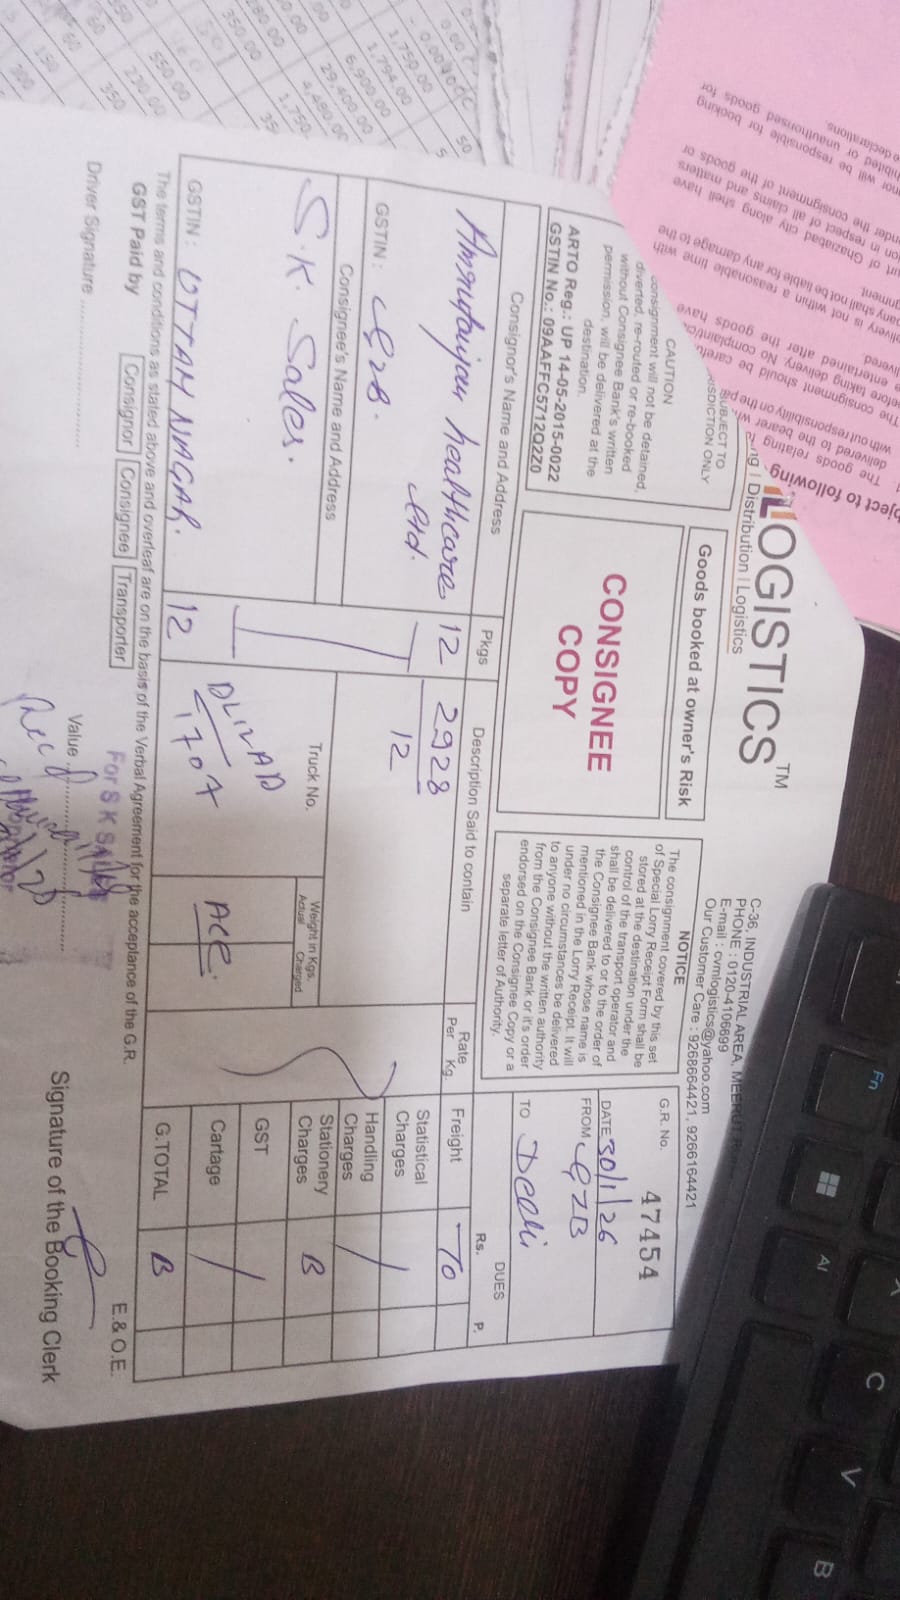 LOGISTICS™
ng | Distribution | Logistics
C-36, INDUSTRIAL AREA, MEERUT
PHONE : 0120-4106699
E-mail : cvmlogistics@yahoo.com
Our Customer Care : 9268664421, 9266164421
SUBJECT TO
RISDICTION ONLY
Goods booked at owner's Risk
CAUTION
consignment will not be detained,
diverted, re-routed or re-booked
without Consignee Bank's written
permission, will be delivered at the
destination.
ARTO Reg.: UP 14-05-2015-0022
GSTIN No.: 09AAFFC5712Q2Z0
CONSIGNEE
COPY
NOTICE
The consignment covered by this set
of Special Lorry Receipt Form shall be
stored at the destination under the
control of the transport operator and
shall be delivered to or to the order of
the Consignee Bank whose name is
mentioned in the Lorry Receipt. It will
under no circumstances be delivered
to anyone without the written authority
from the Consignee Bank or it's order
endorsed on the Consignee Copy or a
separate letter of Authority.
G.R. No. 47454
DATE 30/1/26
FROM GZB
TO Delhi
Consignor's Name and Address
Pkgs
Description Said to contain
Rate
Per Kg.
DUES
Rs. P.
Amrutanjan healthcare
Ltd.
GSTIN : GZB.
12
2928
12
Freight TO
Statistical
Charges
Handling
Charges
Stationery
Charges B
GST
Cartage
G.TOTAL B
Consignee's Name and Address
S.K. Sales.
GSTIN : UTTAM NAGAR.
12
Truck No.
DL12AD
1707
Weight in Kgs.
Actual Charged
ACE.
The terms and conditions as stated above and overleaf are on the basis of the Verbal Agreement for the acceptance of the G.R.
GST Paid by Consignor Consignee Transporter
E.& O.E.
Driver Signature
Value
For S K SALES
Recd
Signature of the Booking Clerk
bject to following
The goods relating
delivered to the bearer
without responsibility on the
The consignment should be
before taking delivery. No complaint
entertained after the goods have
livered.
elivery is not within a reasonable time with
pany shall not be liable for any damage to the
gnment.
urt of Ghaziabad city along shell have
ion in respect of all claims and matters
nder the consignment of the goods or
nor will be responsible for booking
hibited or unauthorised goods for
e declarations.
1,759.00
1,794.00
6,900.00
29,400.00
4,480.00
1,750
350.00
550.00
230.00
350
150
300
Fn
Alt
C
V
B